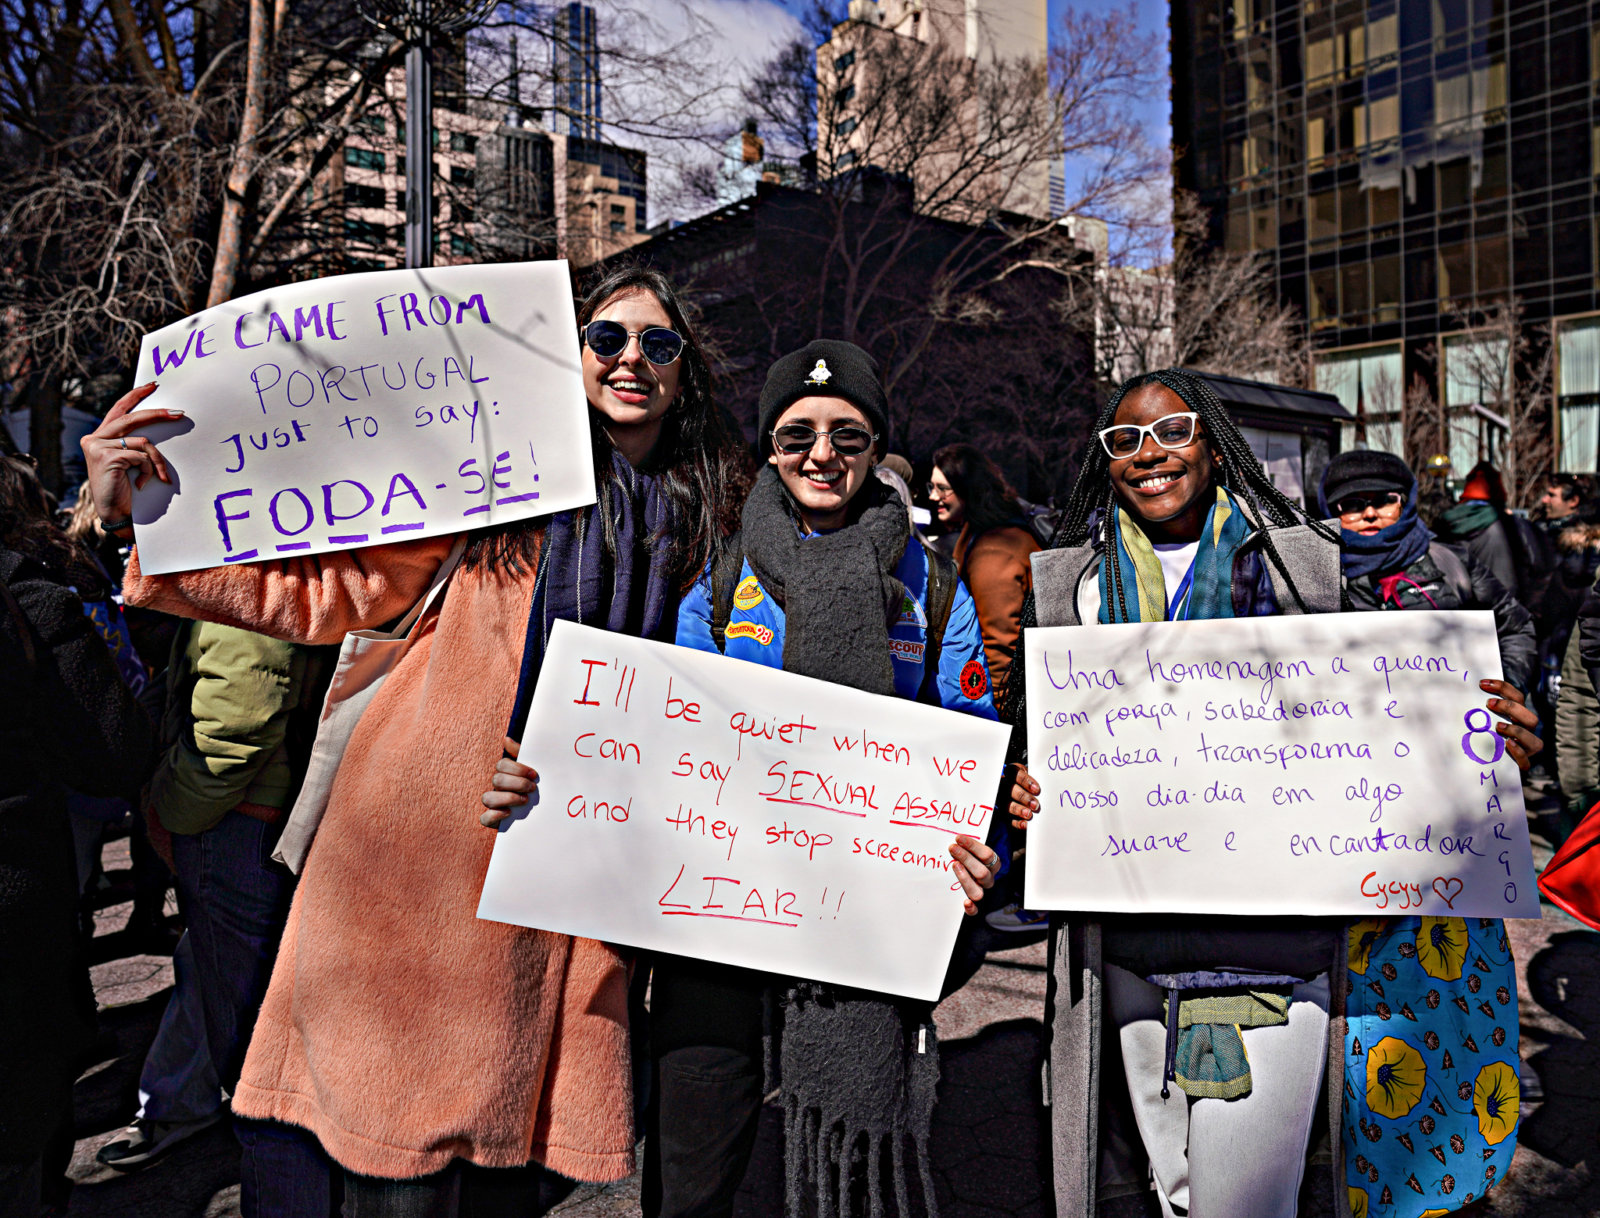 WE CAME FROM
PORTUGAL
Just to say:
FODA-SE!
I'll be quiet when we
can say SEXUAL ASSAULT
and they stop screaming
LIAR!!
Uma homenagem a quem,
com força, sabedoria e
delicadeza, transforma o
nosso dia-dia em algo
suave e encantador
Cycyy ♡
8
MARÇO
SCOUT